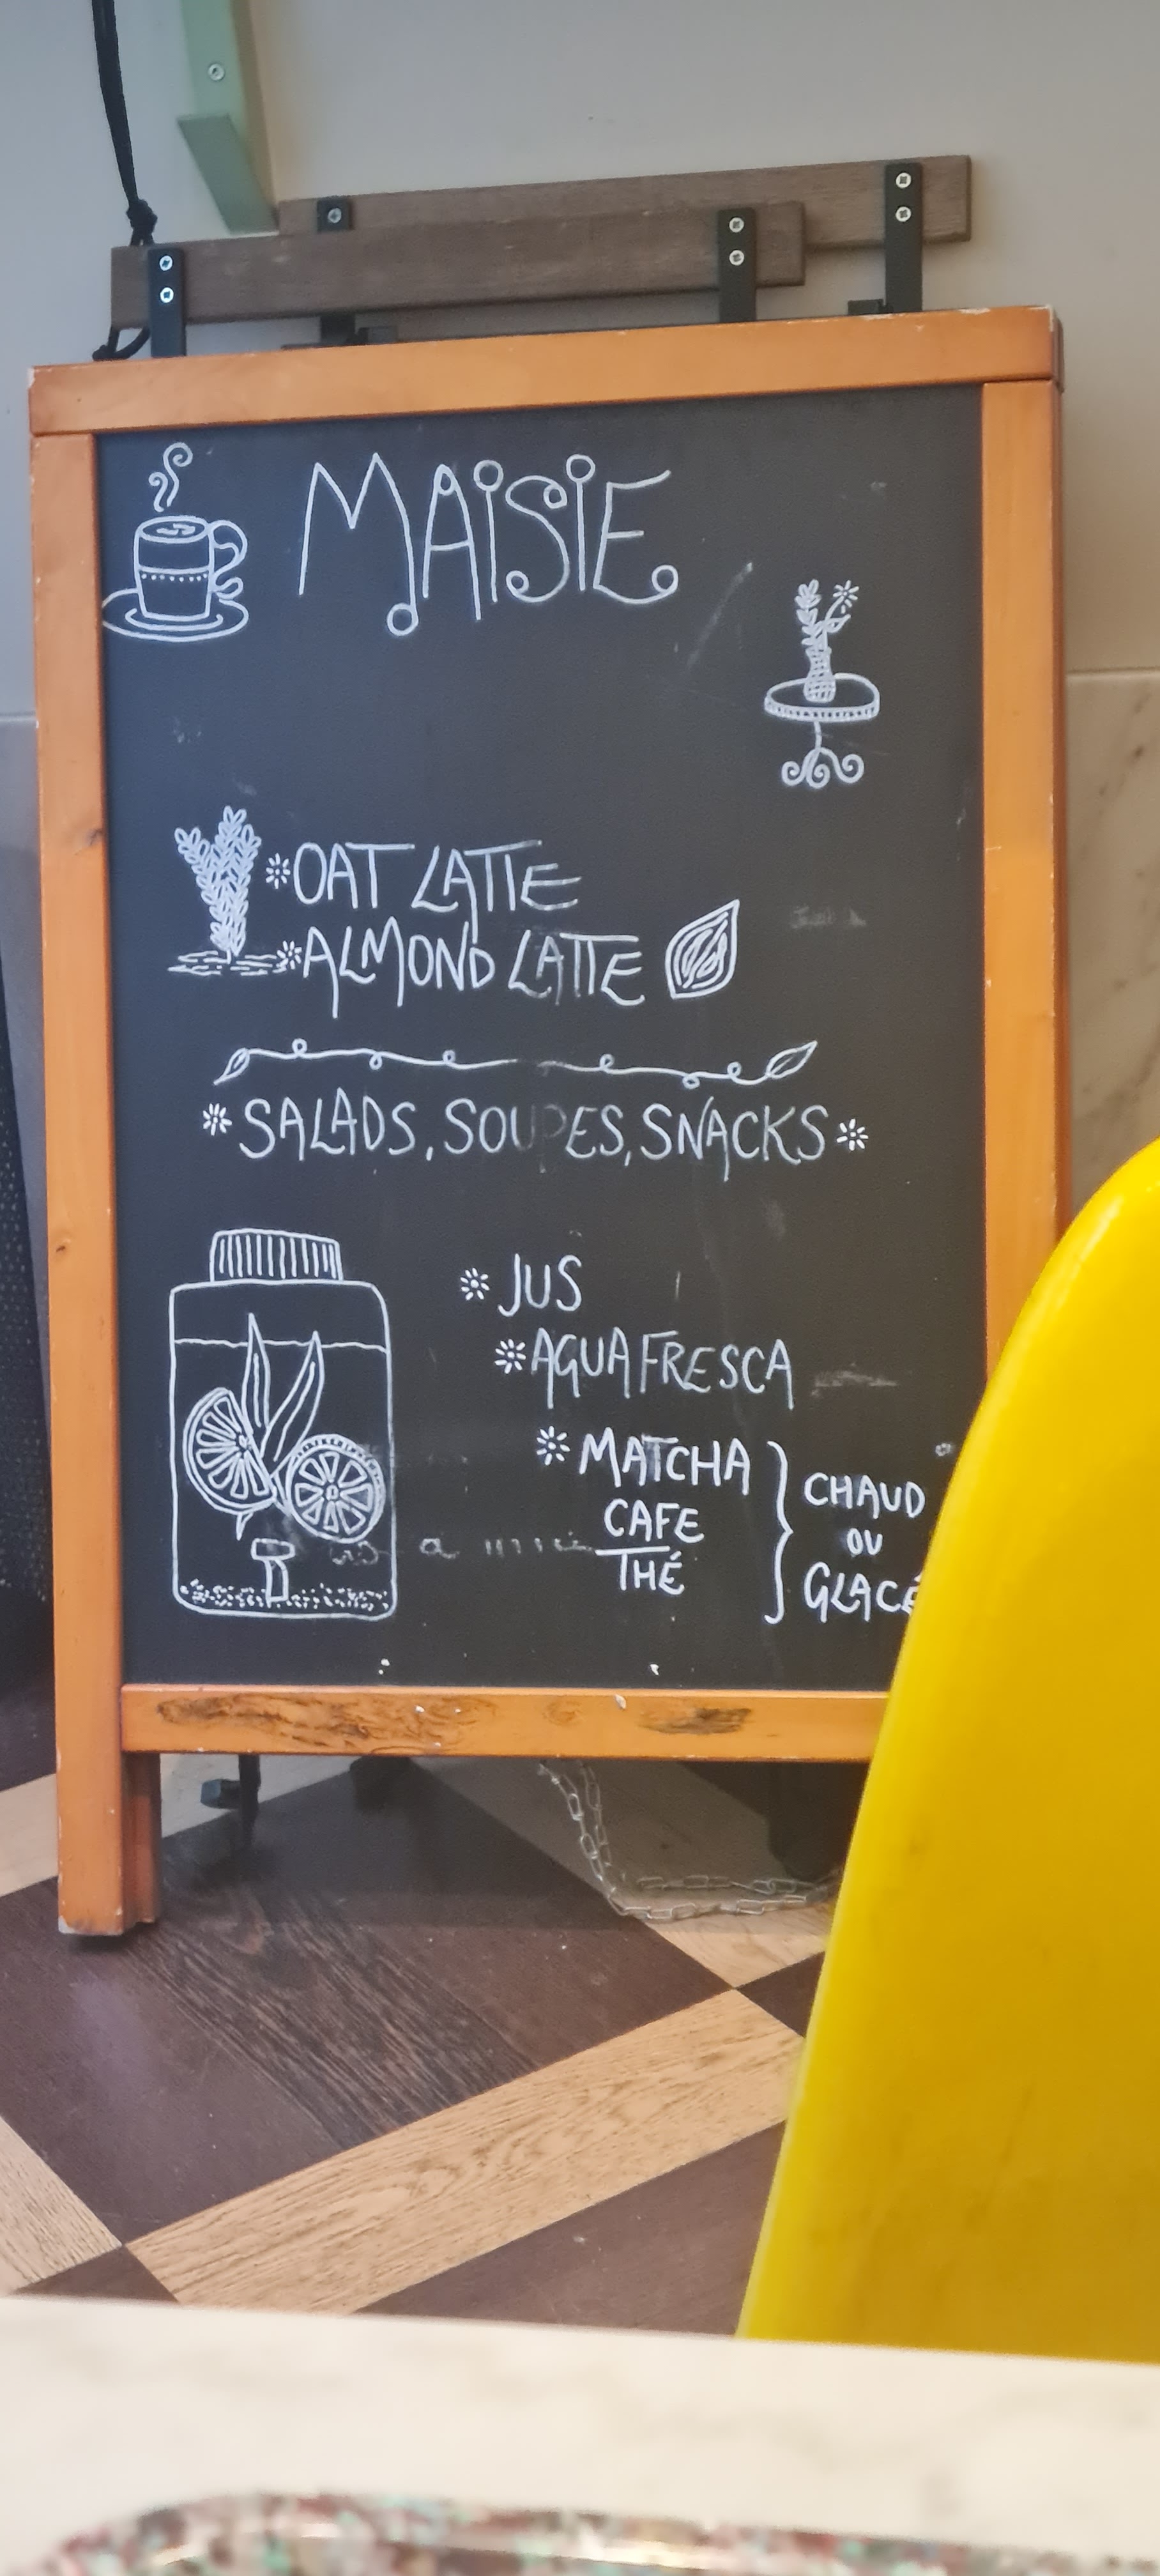 MAISIE
OAT LATTE
ALMOND LATTE
SALADS, SOUPES, SNACKS
JUS
AGUA FRESCA
MATCHA
CAFE
THÉ
CHAUD
OU
GLACÉ